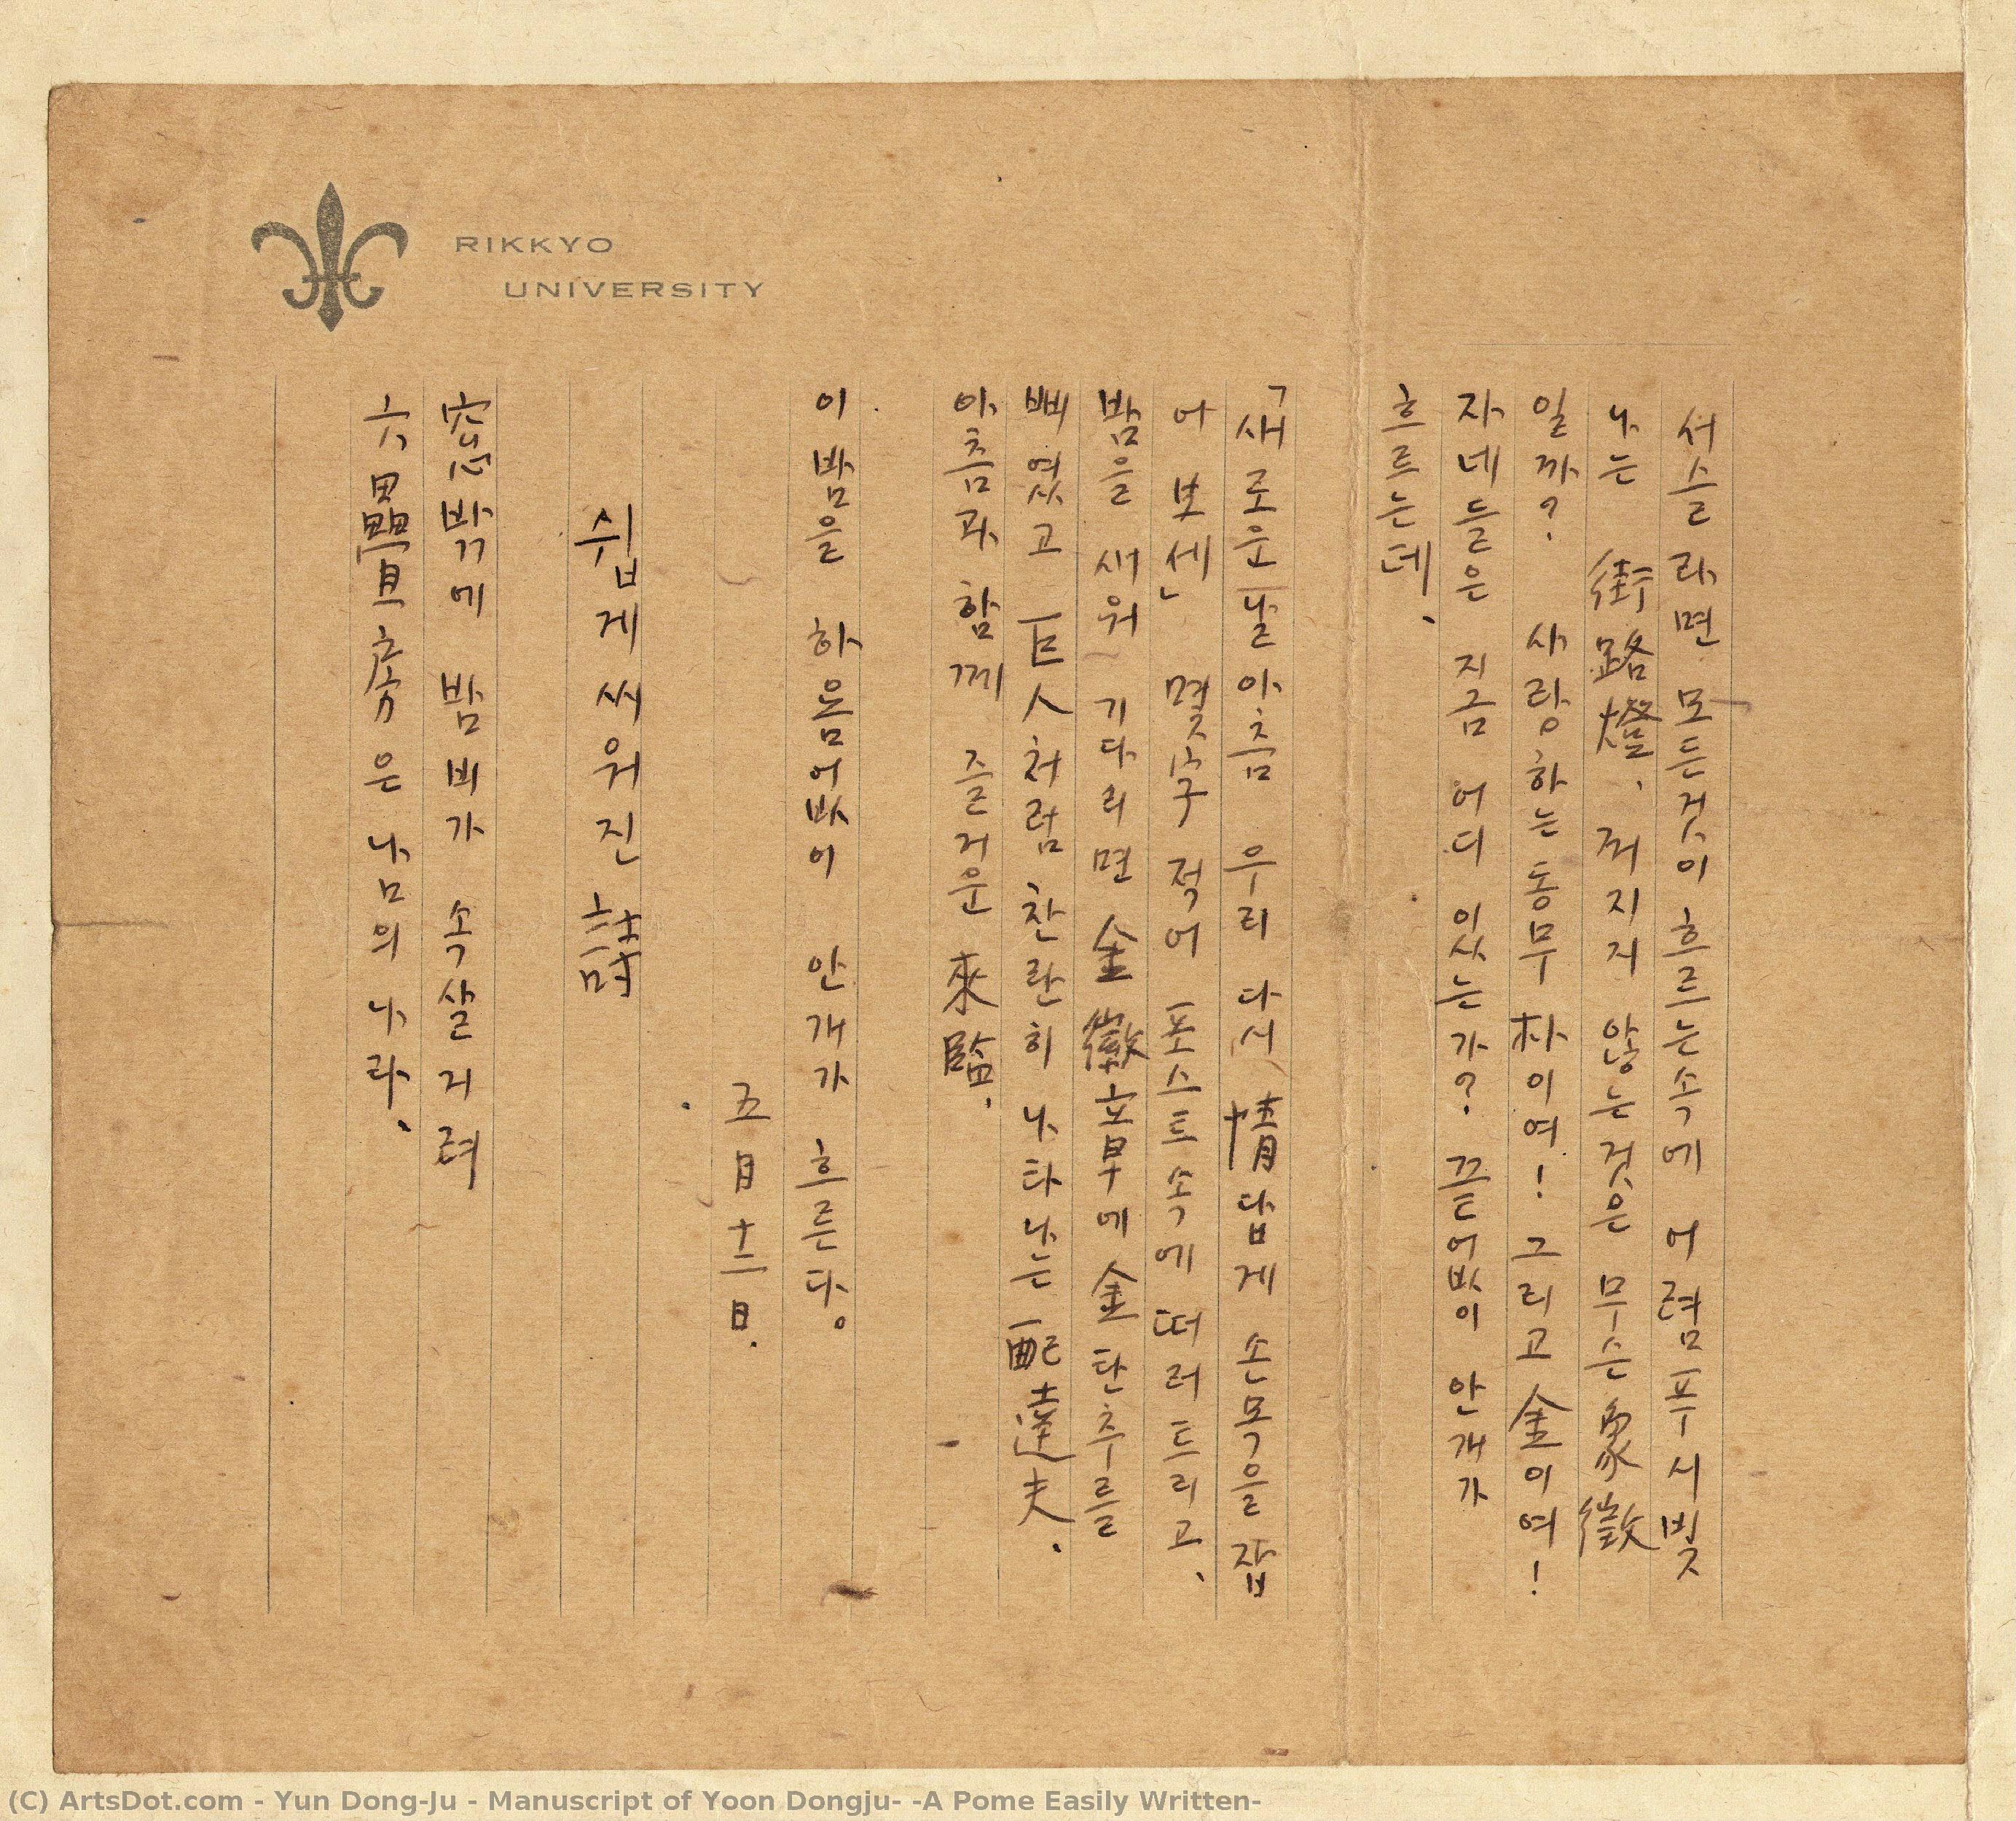 RIKKYO
UNIVERSITY
서슬라면 모든것이 흐르는속에 어렴푸시빛
나는 街路燈、꺼지지 않는것은 무슨象徵
일까? 사랑하는 동무 朴이여! 그리고 金이여!
자네들은 지금 어디 있는가? 끝없이 안개가
흐르는데、
「새로운날아츰 우리 다시 情답게 손목을잡
어 보세」 몇字 적어 포스트속에 떠러트리고、
밤을 새워 기다리면 金徽章에 金단추를
삐였고 巨人처럼 찬란히 나타나는 配達夫.
아츰과 함께 즐거운 來臨.
이밤을 하욤없이 안개가 흐른다。
五月十二日.
쉽게씨워진詩
窓밖에 밤비가 속살거려
六疊房은 남의 나라、
(C) ArtsDot.com - Yun Dong-Ju - Manuscript of Yoon Dongju- -A Pome Easily Written-